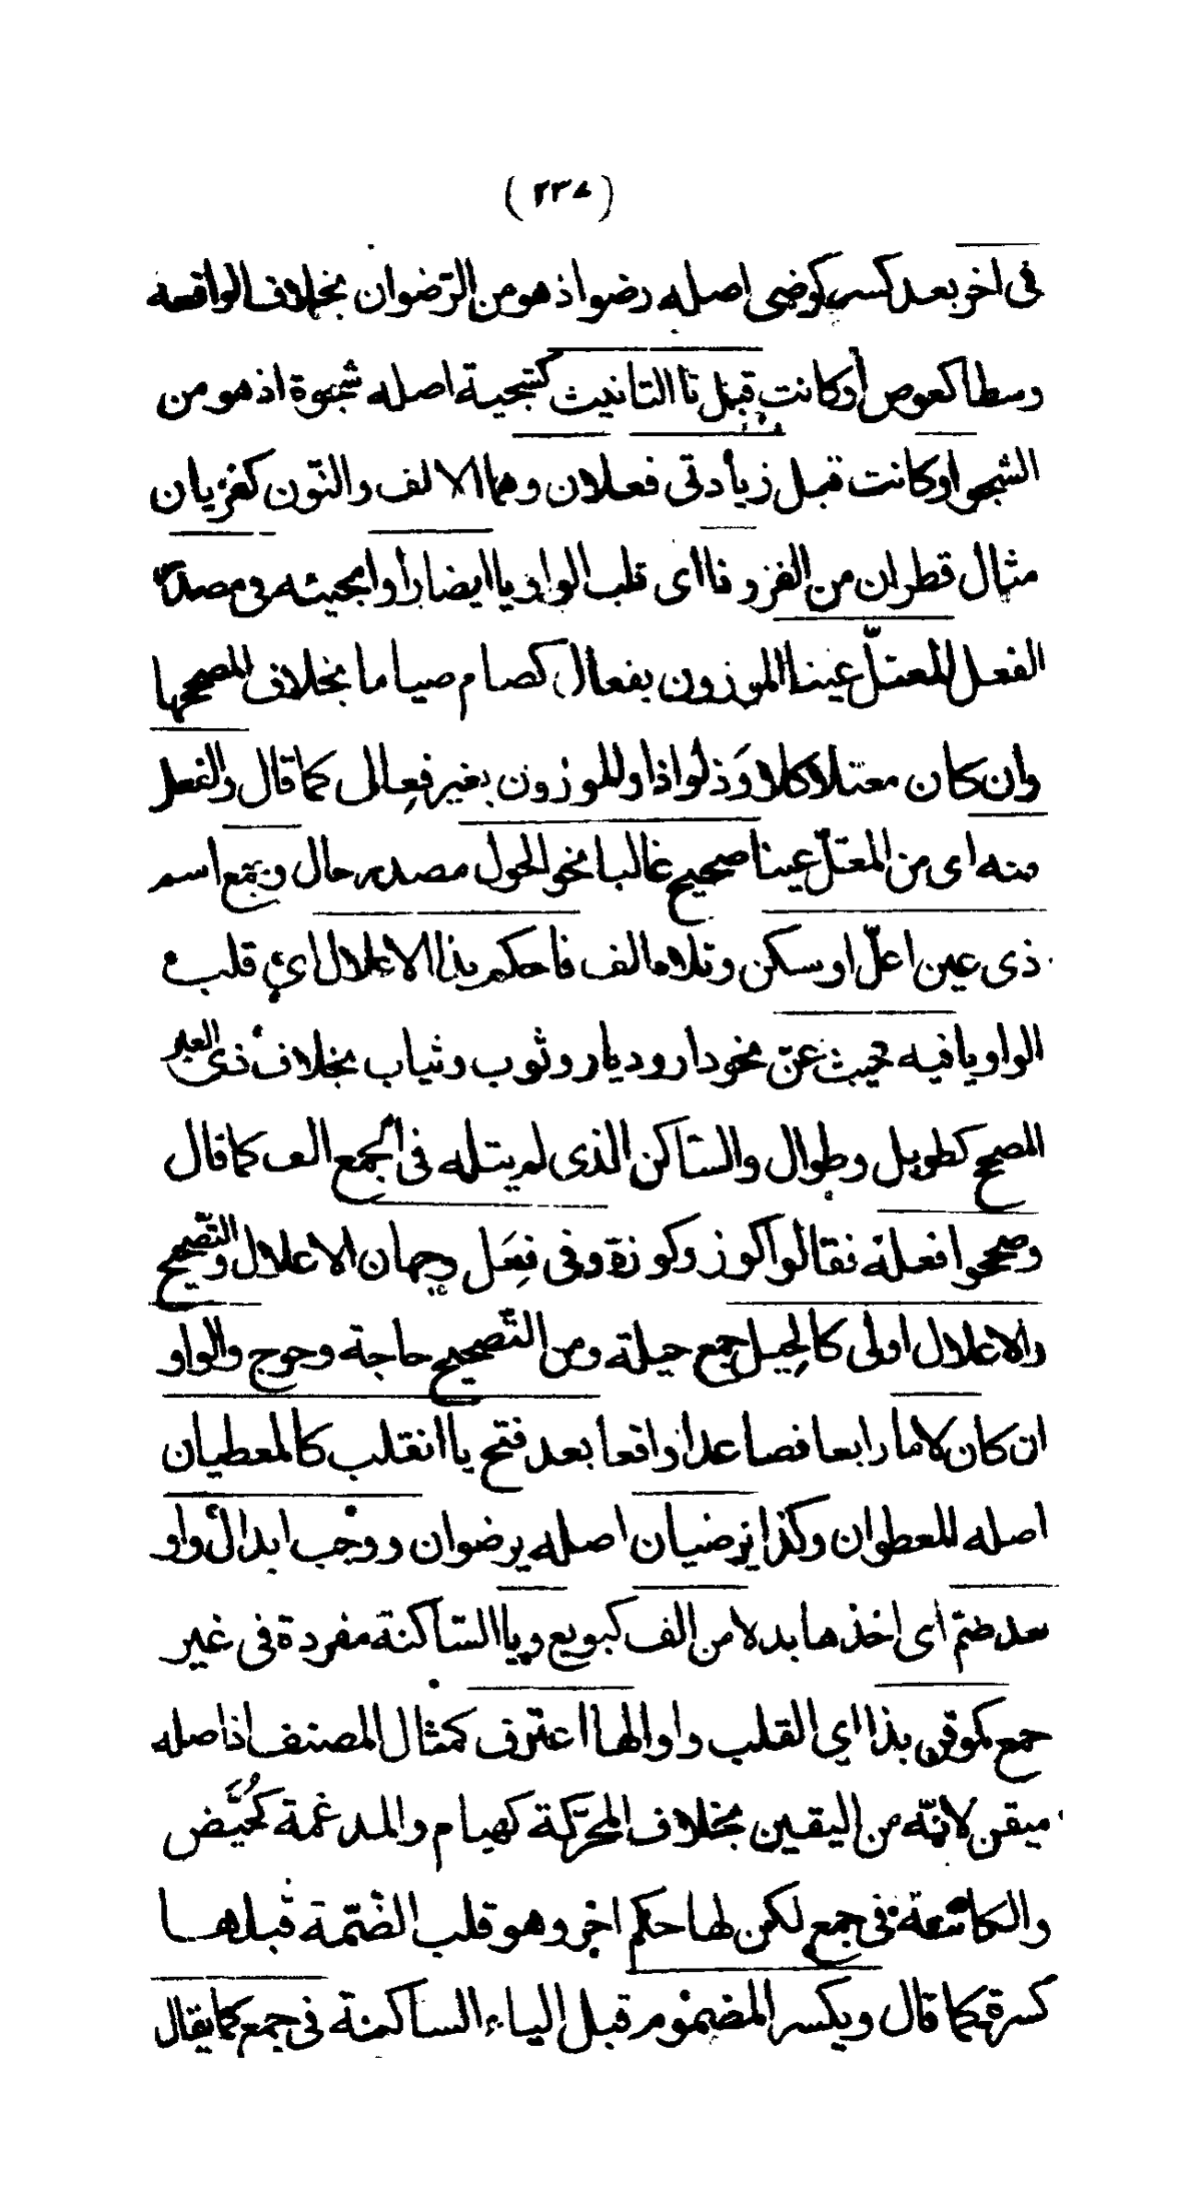 (٢٣٨)
فى اخر بعد كسر كرضى اصله رضو اذ هو من الرّضوان بخلاف الواقعة
وسطا كعوص أوكانت قبل تا التانيث كشجية اصله شجوة اذ هو من
الشجو اوكانت قبل زيادتى فعلان وهما الالف والنّون كغزيان
مثال قطران من الغزو ذا اى قلب الواو يا ايضا رأوا مجيئه فى مصدر
الفعل المعتلّ عينا الموزون بفعال كصام صياما بخلاف المصححها
وان كان معتلا كلاوَذ لواذا والموزون بغير فِعال كما قال والفعل
منه اى من المعتلّ عينا صحيح غالبا نحو الحول مصدر حال وجمع اسم
ذى عين اعلّ او سكن وتلاها الف فاحكم بذا الاعلال اي قلب
الواو يا فيه حيث عنّ نحو دار وديار وثوب وثياب بخلاف ذى العين
المصحح كطويل وطوال والسّاكن الذى لم يتله فى الجمع الف كما قال
وصححوا فعلة فقالوا كوز وكوزة وفى فِعَل وجهان الاعلال والتّصحيح
والاعلال اولى كالحِيل جمع حيلة ومن التّصحيح حاجة وحوج والواو
ان كان لاما رابعا فصاعدا واقعا بعد فتح يا انقلب كالمعطيان
اصله المعطوان وكذا يرضيان اصله يرضوان ووجب ابدال واو
بعد ضمّ اى اخذها بدلا من الف كبويع ويا السّاكنة مفردة فى غير
جمع كموقن بذا اي القلب واوا لها اعترف كمثال المصنف اذ اصله
ميقن لانّه من اليقين بخلاف المحرّكة كهيام والمدغمة كحُيَّض
والكائنة فى جمع لكن لها حكم اخر وهو قلب الضّمة قبلها
كسرة كما قال ويكسر المضموم قبل الياء السّاكنة فى جمع كما يقال